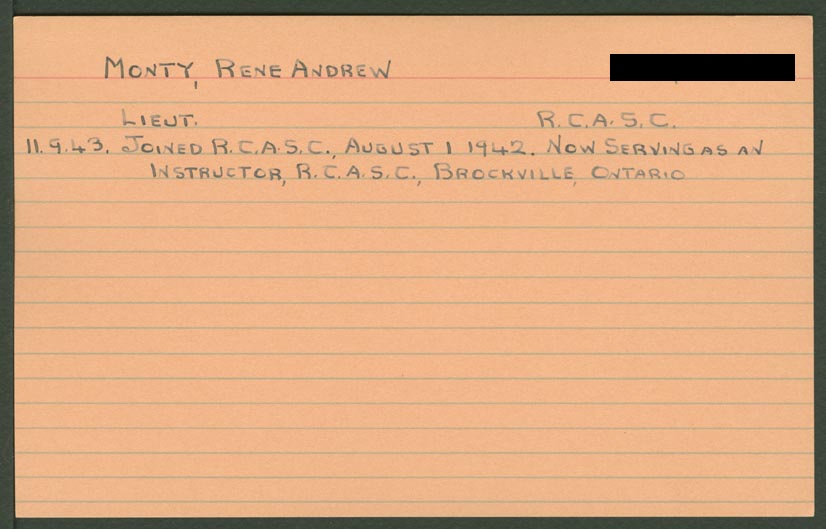 MONTY, RENE ANDREW
LIEUT. R.C.A.S.C.
11.9.43. JOINED R.C.A.S.C., AUGUST 1 1942. NOW SERVING AS AN
INSTRUCTOR, R.C.A.S.C., BROCKVILLE, ONTARIO